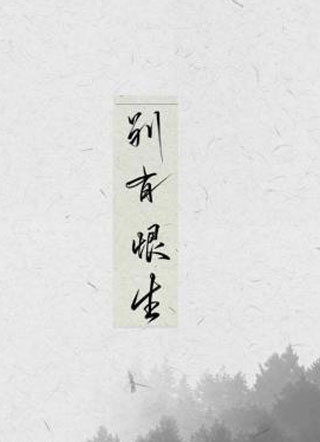 别有恨生